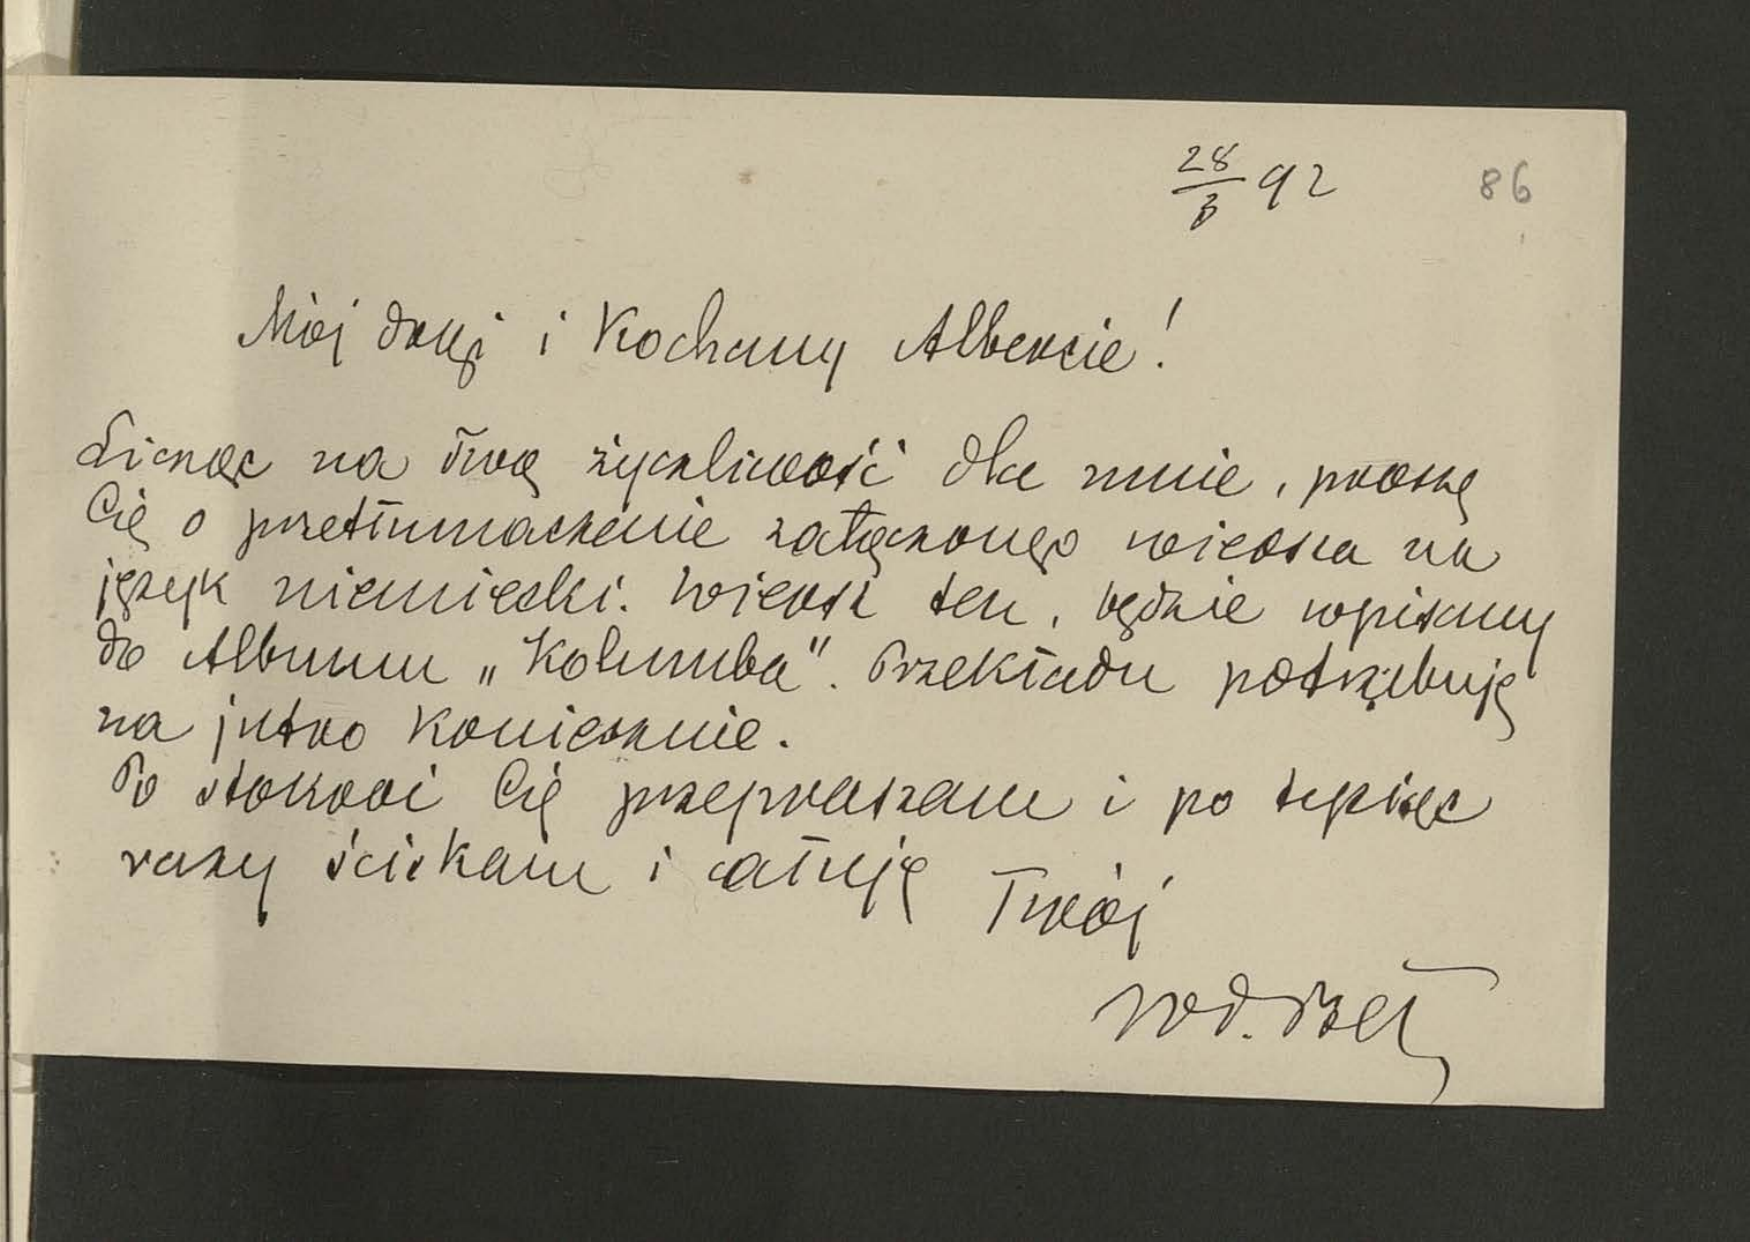 28/3 92
86
Mój drogi i Kochany Albercie!
Licząc na Twą życzliwość dla mnie, proszę
Cię o przetłumaczenie załączonego wiersza na
język niemiecki. Wiersz ten, będzie wpisany
do Albumu „Kolumba". Przekładu potrzebuję
na jutro koniecznie.
Po stokroć Cię przepraszam i po tysiąc
razy ściskam i całuję
Twój
Wł. Bełz